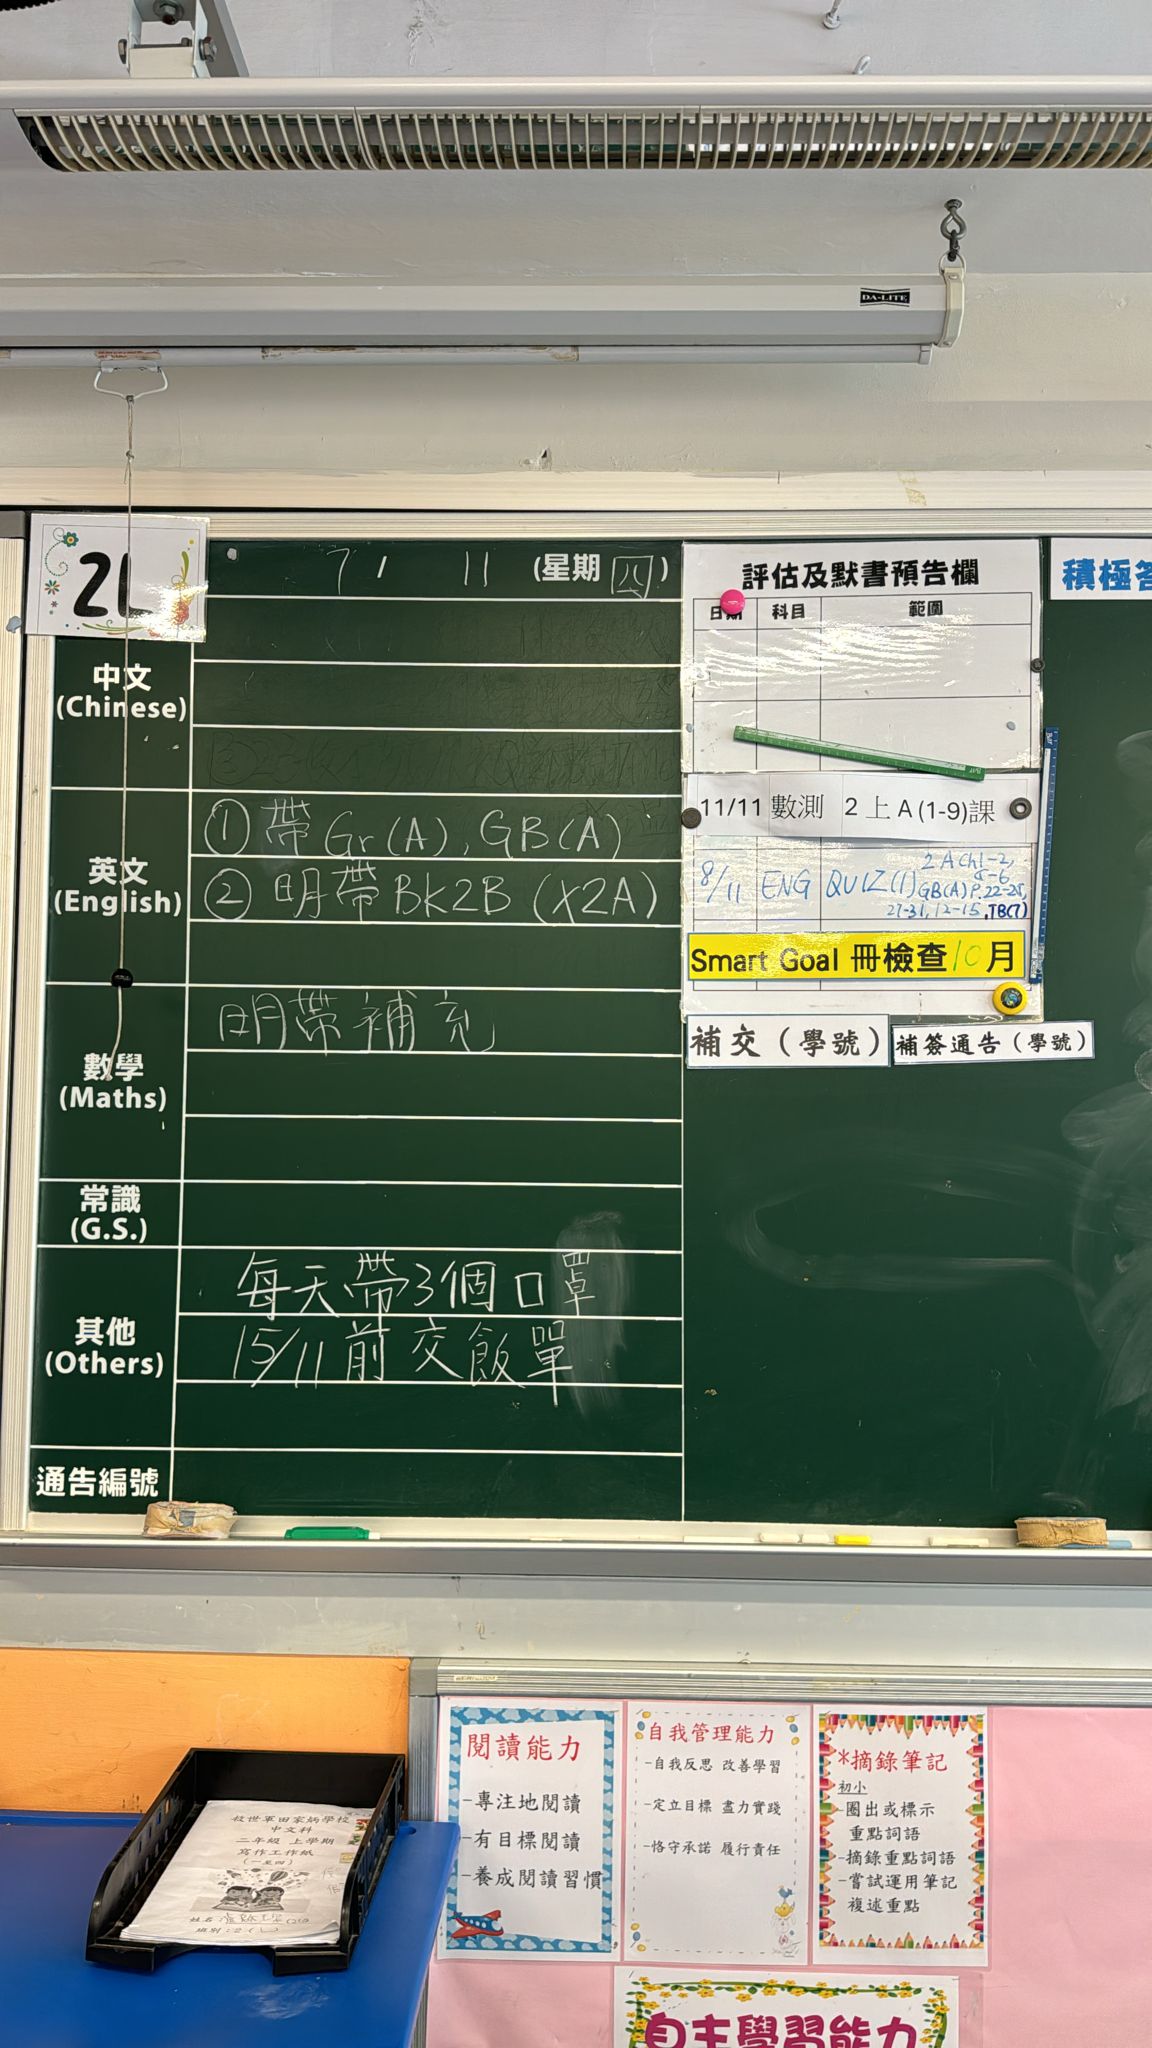 DA-LITE
2L
7 / 11 (星期 四)
中文
(Chinese)
英文
(English)
① 帶 Gr(A), GB(A)
② 明帶 BK2B (X2A)
數學
(Maths)
明帶補充
常識
(G.S.)
其他
(Others)
每天帶3個口罩
15/11前交飯單
通告編號
評估及默書預告欄
日期 科目 範圍
11/11 數測 2上A(1-9)課
8/11 ENG QUIZ(1) 2A Ch1-2,
5-6
GB(A) P.22-25,
27-31, 12-15, TB(7)
Smart Goal 冊檢查10月
補交(學號)
補簽通告(學號)
積極
閱讀能力
-專注地閱讀
-有目標閱讀
-養成閱讀習慣
自我管理能力
-自我反思 改善學習
-定立目標 盡力實踐
-恪守承諾 履行責任
*摘錄筆記
初小
-圈出或標示
重點詞語
-摘錄重點詞語
-嘗試運用筆記
複述重點
自主學習能力
救世軍田家炳學校
中文科
二年級 上學期
寫作工作紙
(一至四)
姓名
班別:2(L)